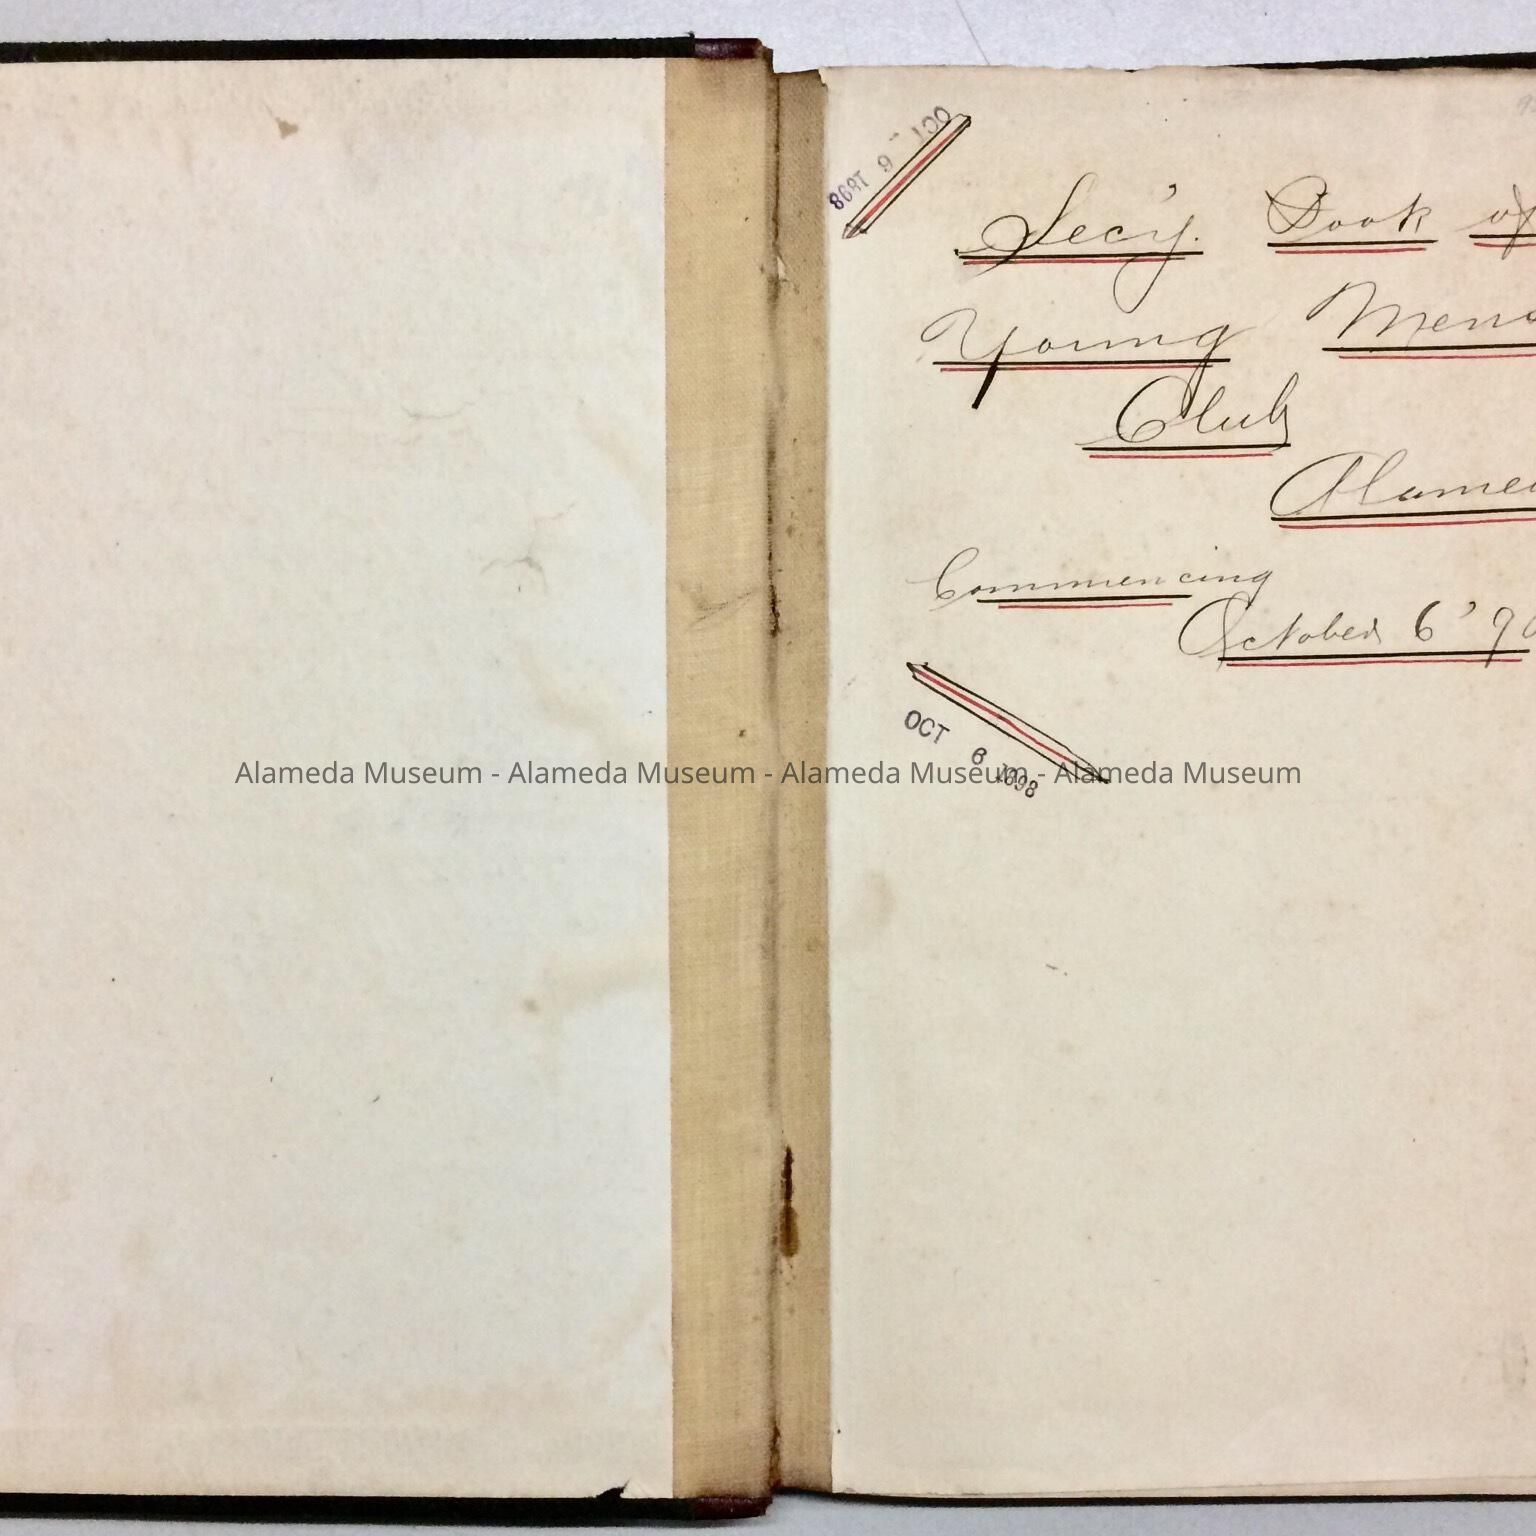 OCT - 6 1898
Sec'y. Book of
Young Mens
Club
Alamed
Commencing
October 6 '9
OCT 6 1898
Alameda Museum - Alameda Museum - Alameda Museum - Alameda Museum